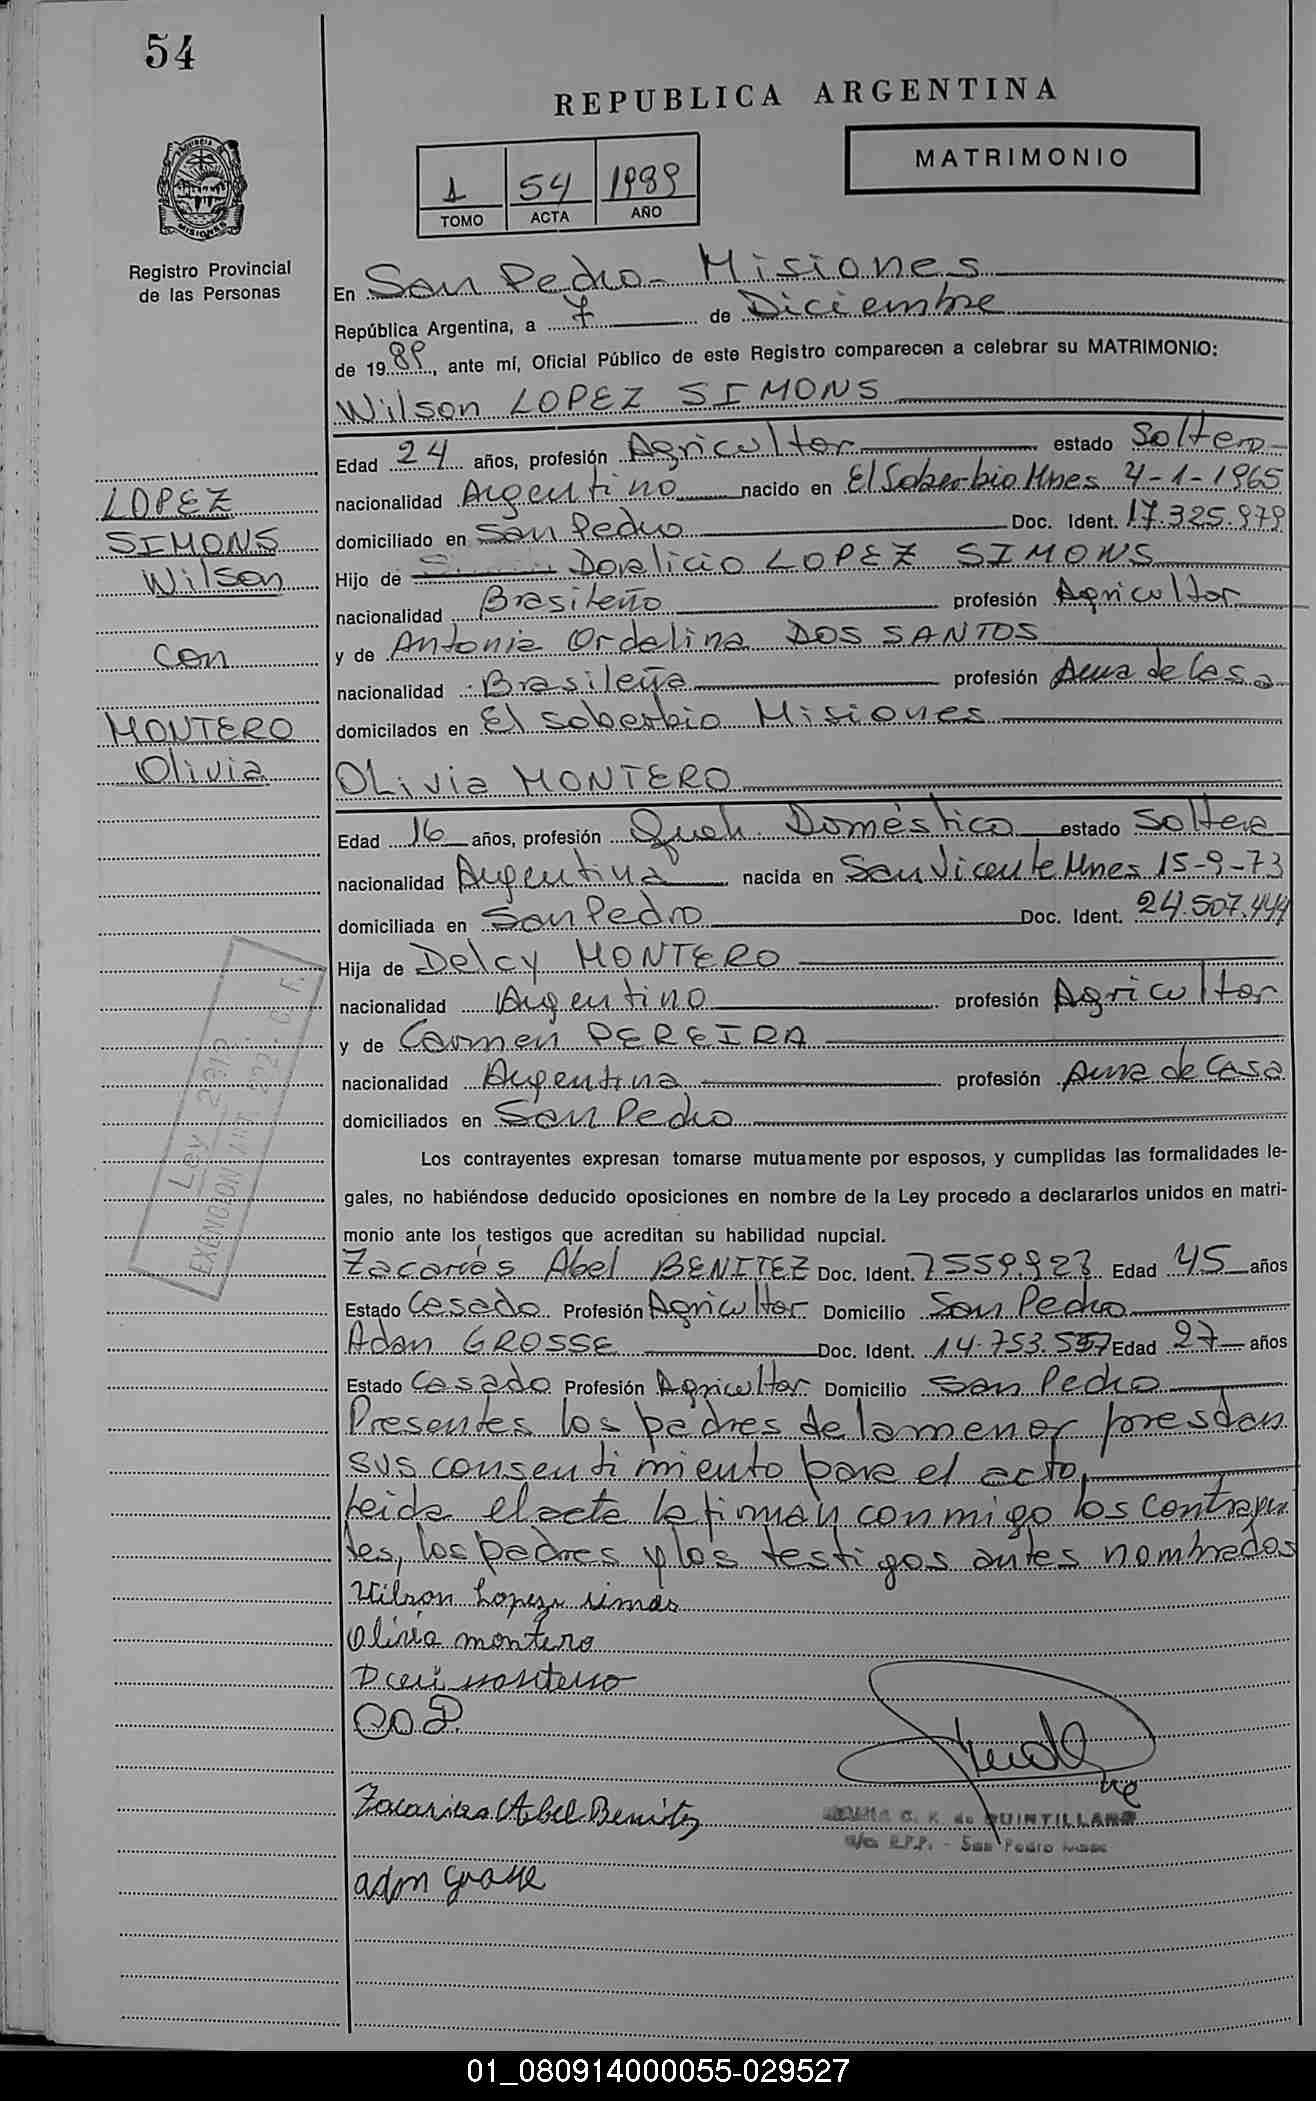 54
REPUBLICA ARGENTINA
MATRIMONIO
1 54 1989
TOMO ACTA AÑO
PROVINCIA DE
MISIONES
Registro Provincial
de las Personas
En San Pedro - Misiones
República Argentina, a 7 de Diciembre
de 1989, ante mí, Oficial Público de este Registro comparecen a celebrar su MATRIMONIO:
Wilson LOPEZ SIMONS
Edad 24 años, profesión Agricultor estado Soltero
LOPEZ
SIMONS
Wilson
con
MONTERO
Olivia
nacionalidad Argentino nacido en El Soberbio Mnes 4-1-1965
domiciliado en San Pedro Doc. Ident. 17.325.979
Hijo de Doralicio LOPEZ SIMONS
nacionalidad Brasileño profesión Agricultor
y de Antonia Ordalina DOS SANTOS
nacionalidad Brasileña profesión Ama de Casa
domicilados en El Soberbio Misiones
OLivia MONTERO
Edad 16 años, profesión Queh. Doméstico estado Soltera
nacionalidad Argentina nacida en San Vicente Mnes 15-9-73
domiciliada en San Pedro Doc. Ident. 24.507.444
Hija de Delcy MONTERO
nacionalidad Argentino profesión Agricultor
y de Carmen PEREIRA
nacionalidad Argentina profesión Ama de Casa
domiciliados en San Pedro
Ley
EXENCION ART
Los contrayentes expresan tomarse mutuamente por esposos, y cumplidas las formalidades le-
gales, no habiéndose deducido oposiciones en nombre de la Ley procedo a declararlos unidos en matri-
monio ante los testigos que acreditan su habilidad nupcial.
Zacarías Abel BENITEZ Doc. Ident. 7559.923 Edad 45 años
Estado Casado Profesión Agricultor Domicilio San Pedro
Adan GROSSE Doc. Ident. 14.753.557 Edad 27 años
Estado Casado Profesión Agricultor Domicilio San Pedro
Presentes los padres de la menor prestan
sus consentimiento para el acto,
leida el acta la firman conmigo los contrayen
tes, los padres y los testigos antes nombrados
Wilson Lopez simos
Olivia montero
montero
C.O.P.
Zacarias Abel Benitez
C. K. de QUINTILLAN
a/c R.P.P. - San Pedro Mnes
adan grosse
01_080914000055-029527